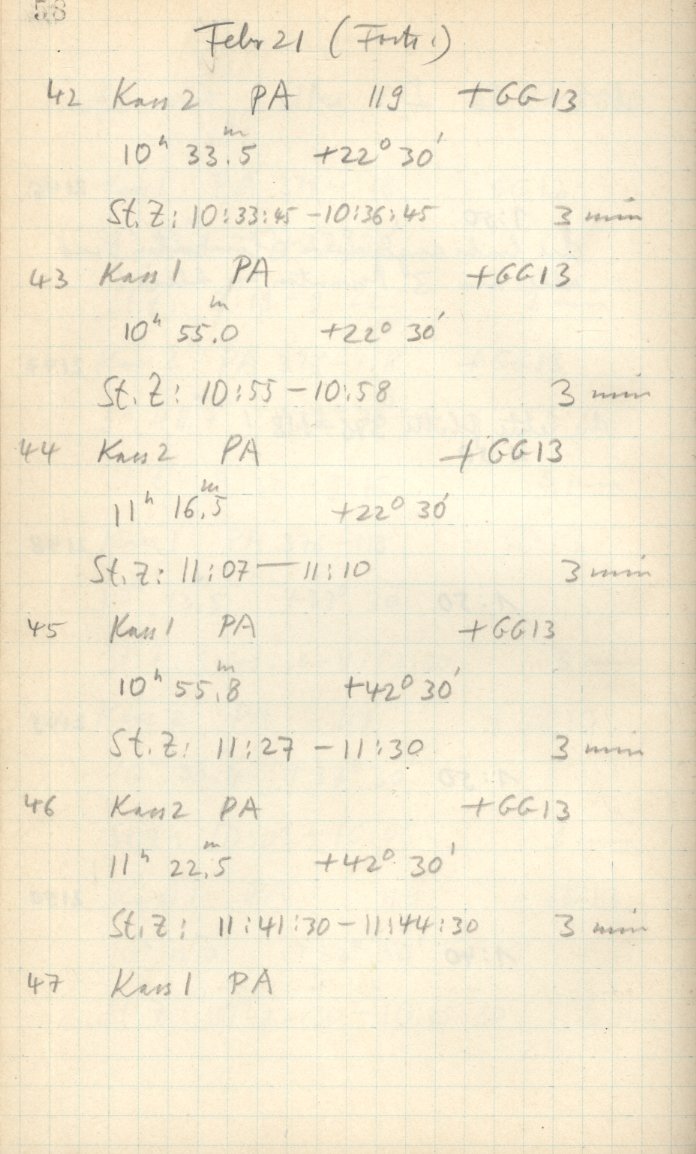 58
Febr 21 (Forts.)
42 Kass 2 PA 119 +GG13
10h 33m.5 +22° 30'
St.Z: 10:33:45 - 10:36:45 3 min
43 Kass 1 PA +GG13
10h 55m.0 +22° 30'
St.Z: 10:55 - 10:58 3 min
44 Kass 2 PA +GG13
11h 16m.5 +22° 30'
St.Z: 11:07 - 11:10 3 min
45 Kass 1 PA +GG13
10h 55m.8 +42° 30'
St.Z: 11:27 - 11:30 3 min
46 Kass 2 PA +GG13
11h 22m.5 +42° 30'
St.Z: 11:41:30 - 11:44:30 3 min
47 Kass 1 PA